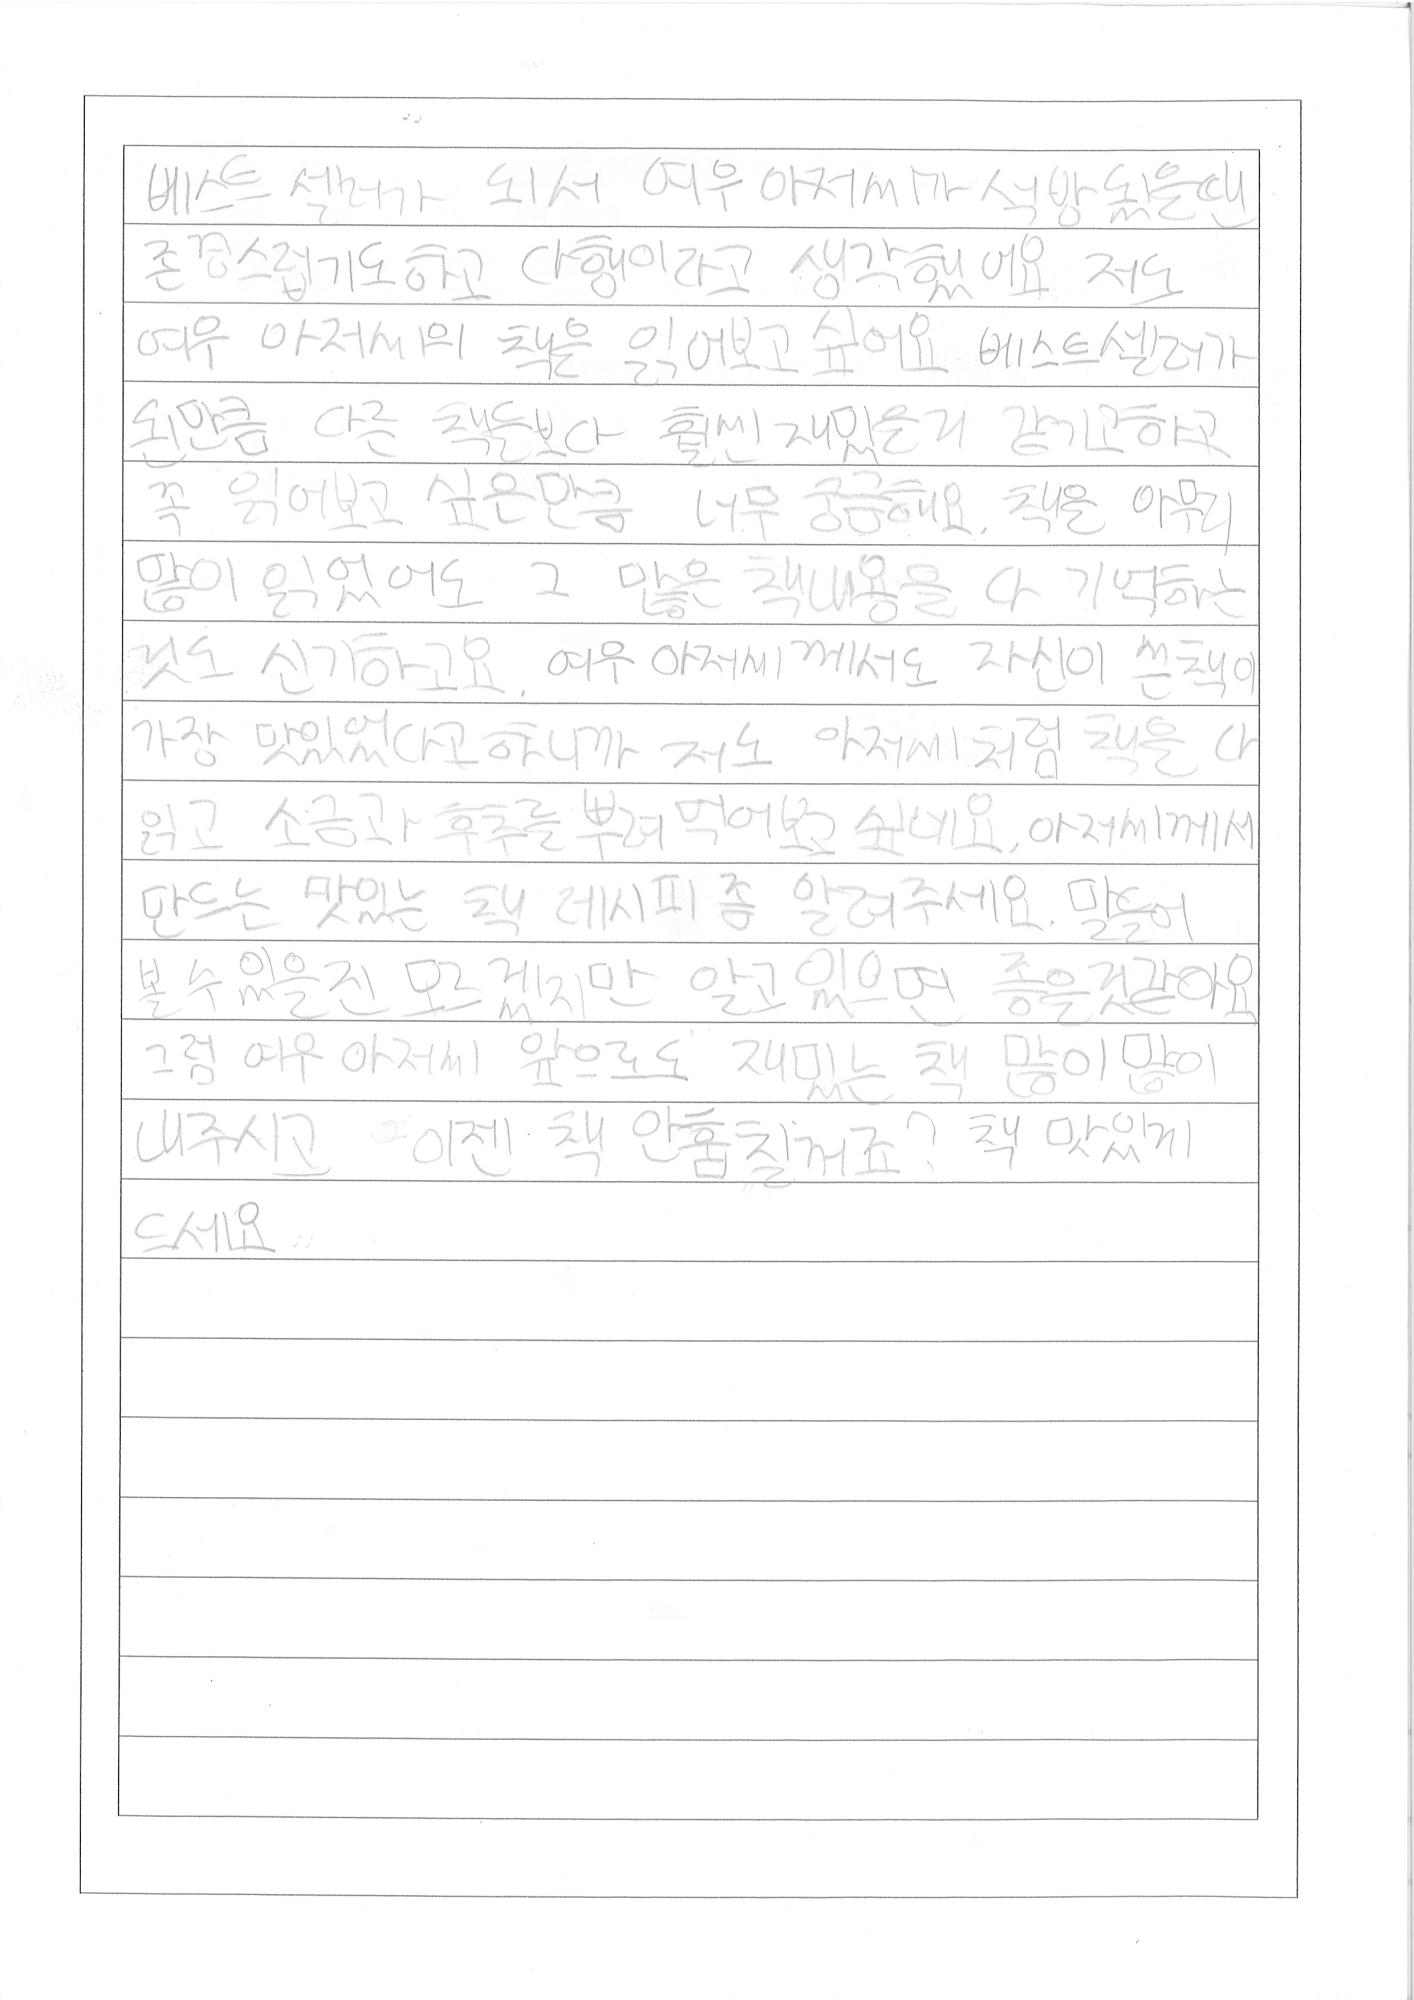 베스트 셀러가 되서 여우 아저씨가 석방 됬을땐
존경스럽기도하고 다행이라고 생각했어요 저도
여우 아저씨의 책을 읽어보고 싶어요 베스트셀러가
된만큼 다른 책들보다 훨씬 재밌을거 같기고하고
꼭 읽어보고 싶은만큼 너무 궁금해요. 책을 아무리
많이 읽었어도 그 많은 책내용을 다 기억하는
것도 신기하고요. 여우 아저씨께서도 자신이 쓴책이
가장 맛있었다고하니까 저도 아저씨처럼 책을 다
읽고 소금과 후추를 뿌려 먹어보고 싶네요. 아저씨께서
만드는 맛있는 책 레시피 좀 알려주세요. 말들어
볼수있을진 모르겠지만 알고있으면 좋을것같아요
그럼 여우 아저씨 앞으로도 재밌는 책 많이많이
내주시고 이젠 책 안훔칠꺼죠? 책 맛있게
드세요